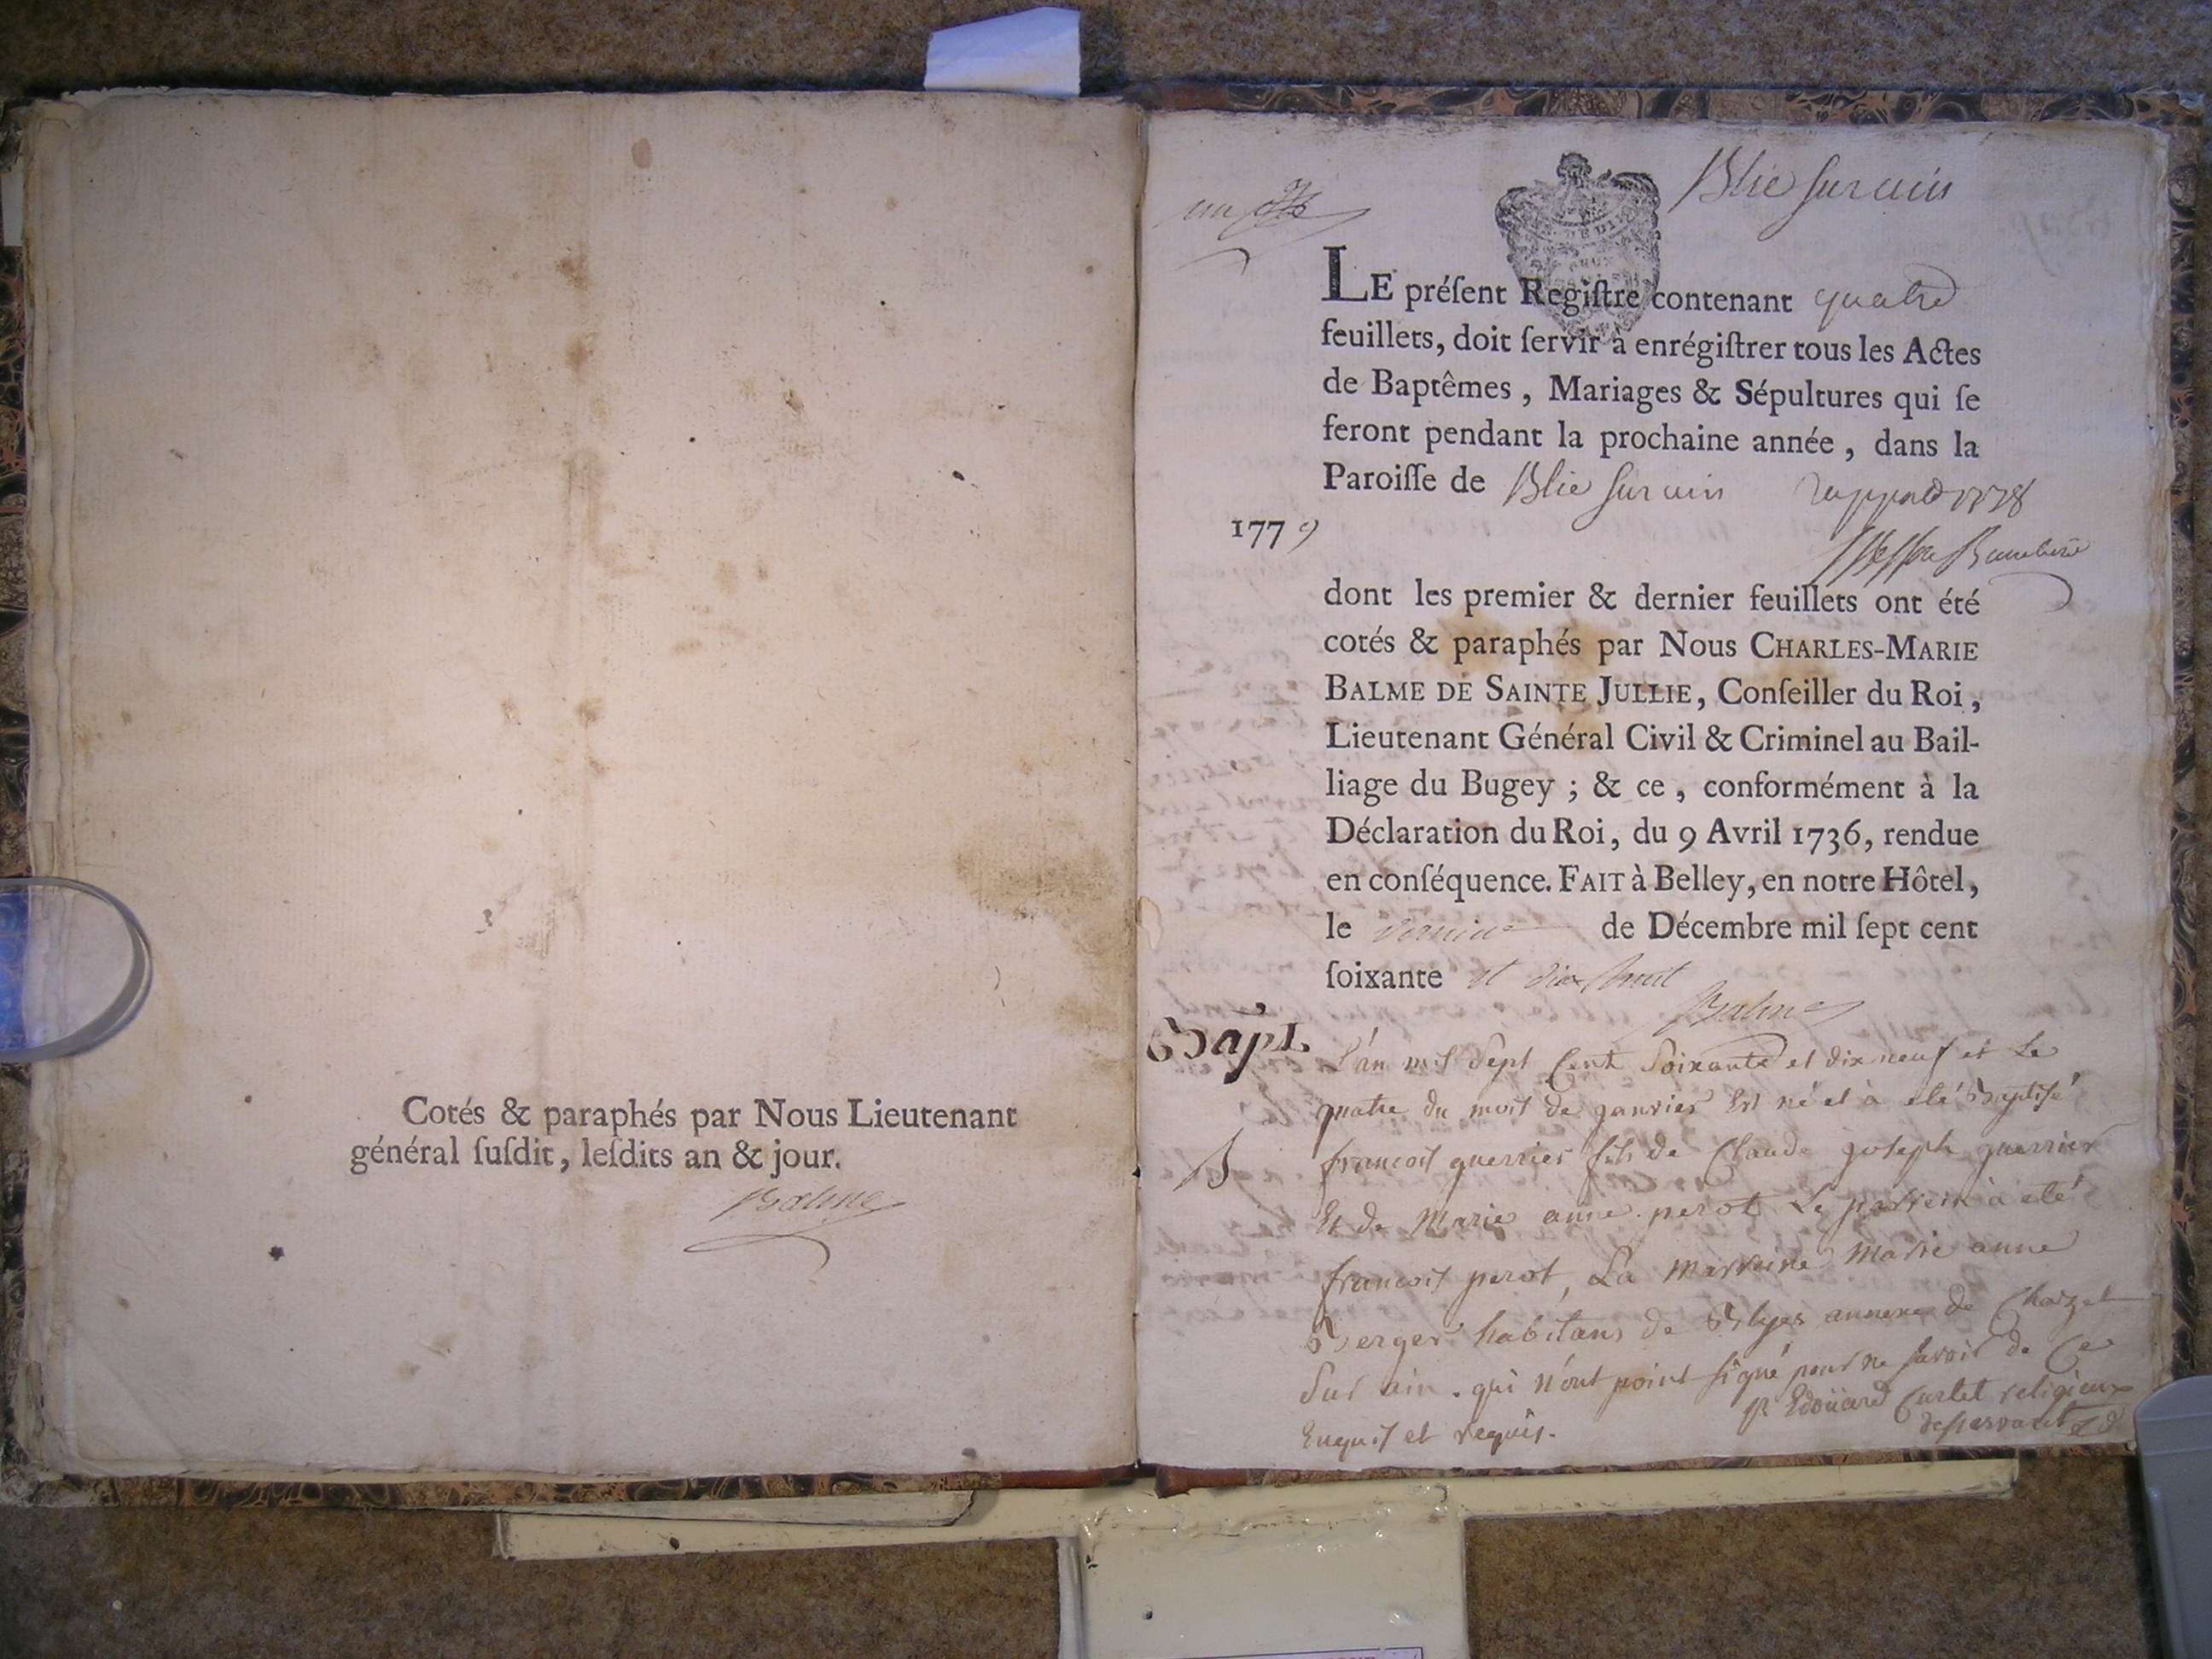 Cotés & paraphés par Nous Lieutenant
général ſuſdit, leſdits an & jour.
Balme
Blie sur ain
un
LE préſent Regiſtre contenant quatre
feuillets, doit ſervir à enrégiſtrer tous les Actes
de Baptêmes, Mariages & Sépultures qui ſe
feront pendant la prochaine année, dans la
Paroiſſe de Blie sur ain
1779
dont les premier & dernier feuillets ont été
cotés & paraphés par Nous CHARLES-MARIE
BALME DE SAINTE JULLIE, Conſeiller du Roi,
Lieutenant Général Civil & Criminel au Bail-
liage du Bugey ; & ce, conformément à la
Déclaration du Roi, du 9 Avril 1736, rendue
en conſéquence. FAIT à Belley, en notre Hôtel,
le dernier de Décembre mil ſept cent
ſoixante et dix huit
Balme
Bapt
L'an mil Sept Cent Soixante et dix neuf et le
quatre du mois de janvier Est né et à eté Baptisé
B
francois guerrier fils de Claude joseph guerrier
Et de Marie anne perot Le parrein à eté
francois perot, La Marreine Marie anne
Berger habitans de Blyes annexe de Chazel
Sur ain. qui n'ont point signé pour ne savoir de Ce
Enquis et requis.
fr Edoüard Curtet religieux
desservant